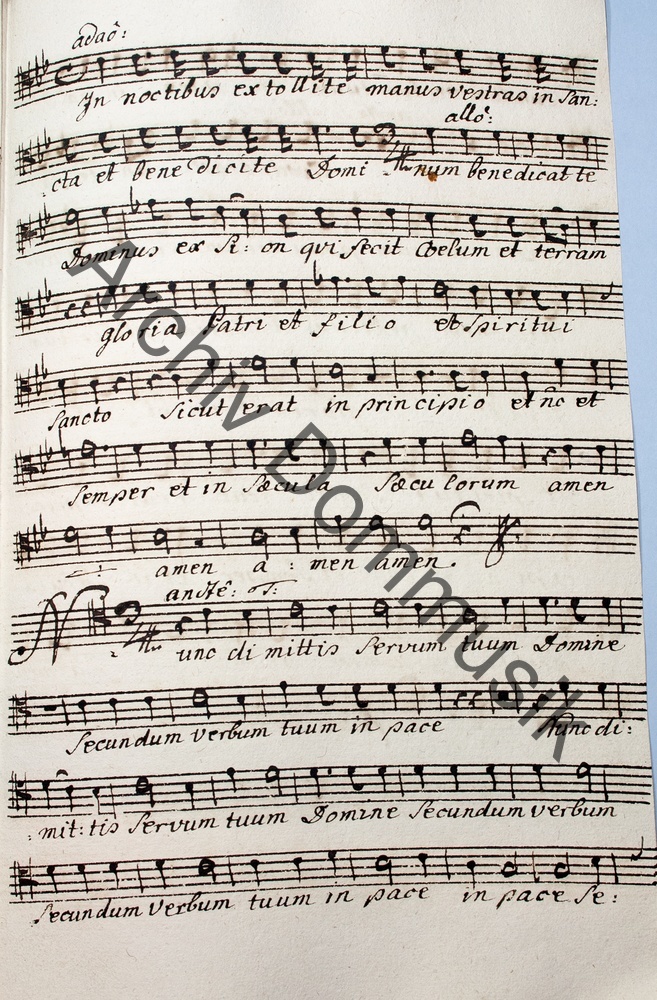 adaō:
In noctibus extollite manus vestras in San:
allō:
cta et bene dicite Domi num benedicat te
Dominus ex Si: on qui fecit Coelum et terram
gloria Patri et filio et Spiritui
Sancto Sicut erat in principio et nc et
Semper et in Sæcula Sæculorum amen
amen a : men amen.
andtē:
Nunc di mittis Servum tuum Domine
Secundum verbum tuum in pace Nunc di:
: mit: tis Servum tuum Domine Secundum verbum
Secundum verbum tuum in pace in pace Se:
Archiv Dommusik